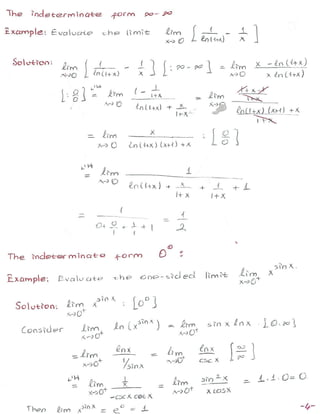 The indeterminate form ∞-∞
Example: Evaluate the limit lim x→0 [ 1/ln(1+x) - 1/x ]
Solution: lim x→0 [ 1/ln(1+x) - 1/x ] [: ∞-∞] = lim x→0 x - ln(1+x) / x ln(1+x)
[: 0/0] L'H = lim x→0 1 - 1/1+x / ln(1+x) + x/1+x = lim x→0 / ln(1+x).(x+1) + x
= lim x→0 x / ln(1+x)(x+1) + x : [0/0]
L'H = lim x→0 1 / ln(1+x) + x/1+x + 1/1+x + 1
= 1 / 0 + 0/1 + 1/1 + 1 = 1/2
The indeterminate form 0^0 :
Example: Evaluate the one-sided limit lim x→0+ x^sin x.
Solution: lim x→0+ x^sin x : [0^0]
Consider lim x→0+ ln (x^sin x) = lim x→0+ sin x ln x [0.∞]
= lim x→0+ ln x / 1/sin x = lim x→0+ ln x / csc x [∞/∞]
L'H = lim x→0+ 1/x / -csc x cot x = lim x→0+ sin² x / x cos x = 1.1.0 = 0
Then lim x→0+ x^sin x = e^0 = 1 -4-